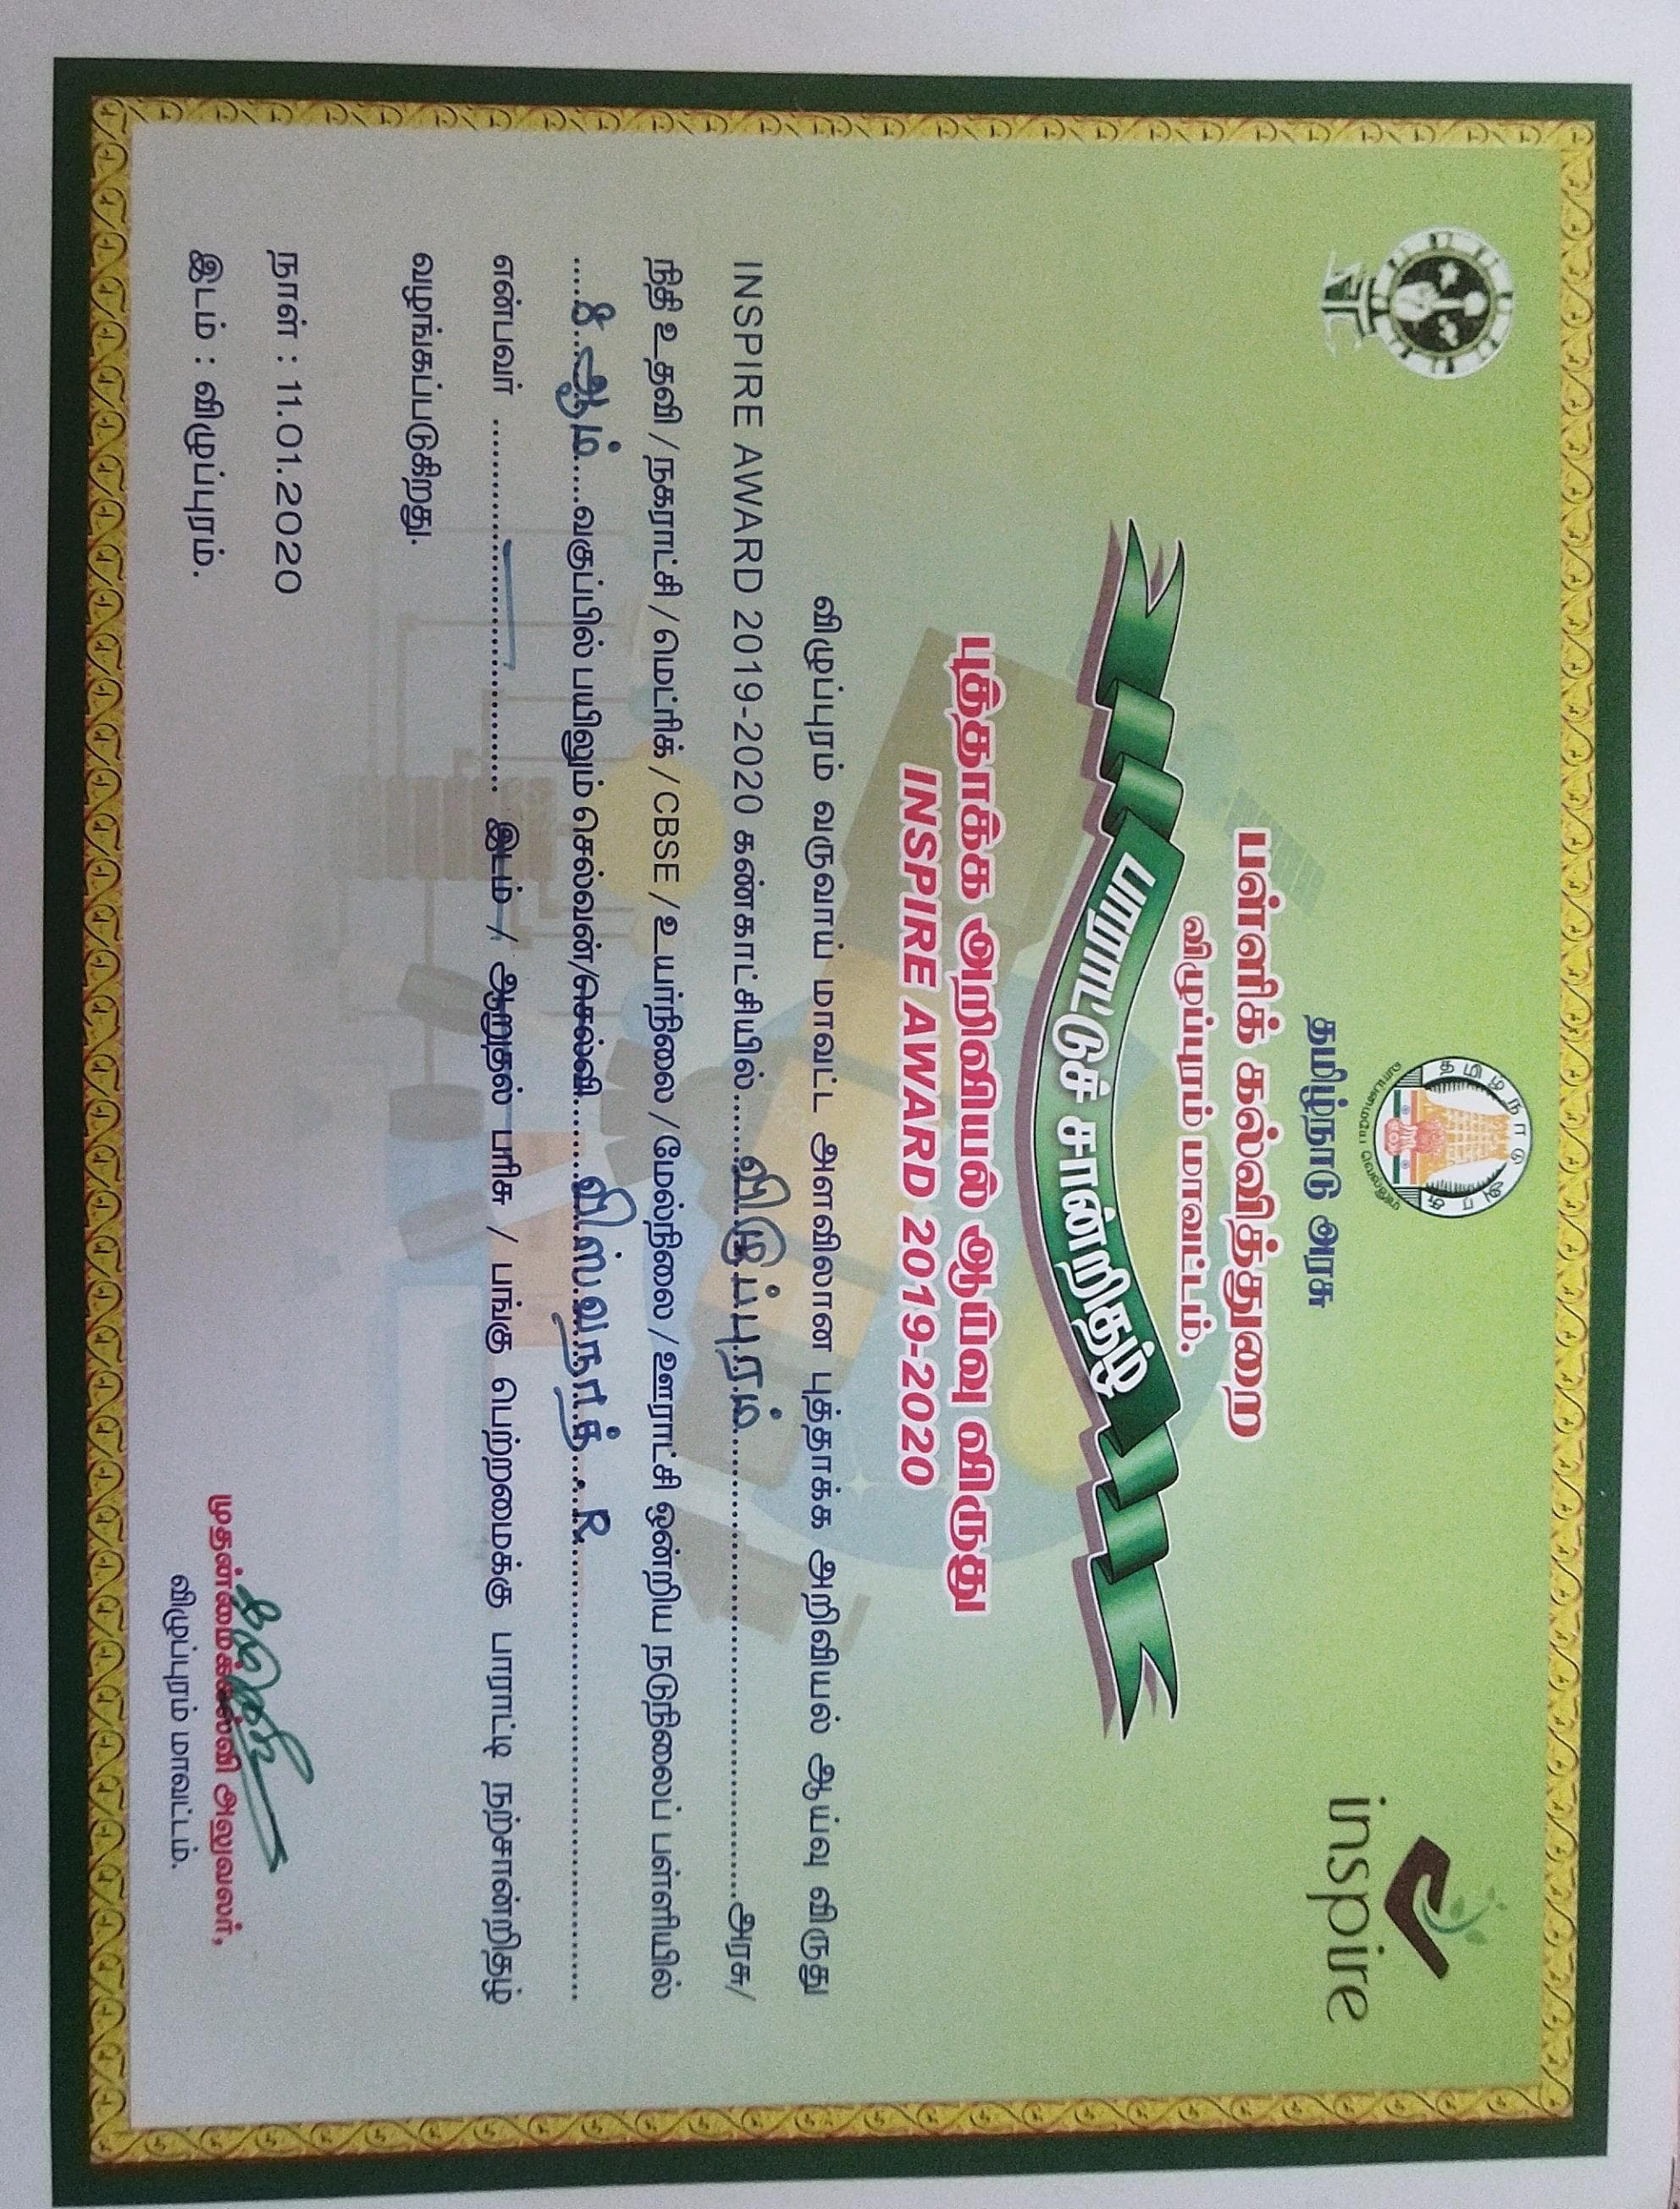 தமிழ்நாடு அரசு
வாய்மையே வெல்லும்
inspire
தமிழ்நாடு அரசு
பள்ளிக் கல்வித்துறை
விழுப்புரம் மாவட்டம்.
பாராட்டுச் சான்றிதழ்
புத்தாக்க அறிவியல் ஆய்வு விருது
INSPIRE AWARD 2019-2020
விழுப்புரம் வருவாய் மாவட்ட அளவிலான புத்தாக்க அறிவியல் ஆய்வு விருது
INSPIRE AWARD 2019-2020 கண்காட்சியில்......விழுப்புரம்......அரசு/
நிதி உதவி / நகராட்சி / மெட்ரிக் / CBSE / உயர்நிலை / மேல்நிலை / ஊராட்சி ஒன்றிய நடுநிலைப் பள்ளியில்
.....8 ஆம்.....வகுப்பில் பயிலும் செல்வன்/செல்வி......விஸ்வநாத் . R......
என்பவர் ...................... இடம் / ஆறுதல் பரிசு / பங்கு பெற்றமைக்கு பாராட்டி நற்சான்றிதழ்
வழங்கப்படுகிறது.
நாள் : 11.01.2020
இடம் : விழுப்புரம்.
முதன்மைக்கல்வி அலுவலர்,
விழுப்புரம் மாவட்டம்.